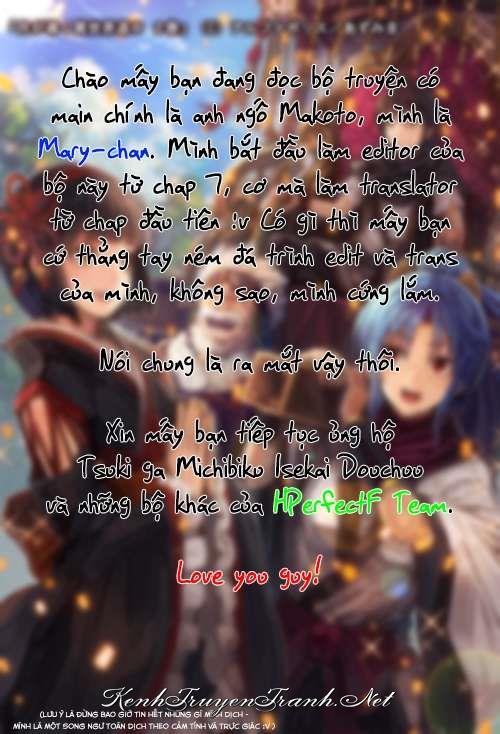 Chào mấy bạn đang đọc bộ truyện có
main chính là anh ngố Makoto, mình là
Mary-chan. Mình bắt đầu làm editor của
bộ này từ chap 7, cơ mà làm translator
từ chap đầu tiên :v Có gì thì mấy bạn
cứ thẳng tay ném đá trình edit và trans
của mình, không sao, mình cứng lắm.
Nói chung là ra mắt vậy thôi.
Xin mấy bạn tiếp tục ủng hộ
Tsuki ga Michibiku Isekai Douchuu
và những bộ khác của HPerfectF Team.
Love you guy!
KenhTruyenTranh.Net
(LƯU Ý LÀ ĐỪNG BAO GIỜ TIN HẾT NHỮNG GÌ MÌNH DỊCH -
MÌNH LÀ MỘT SONG NGƯ TOÀN DỊCH THEO CẢM TÍNH VÀ TRỰC GIÁC :V )